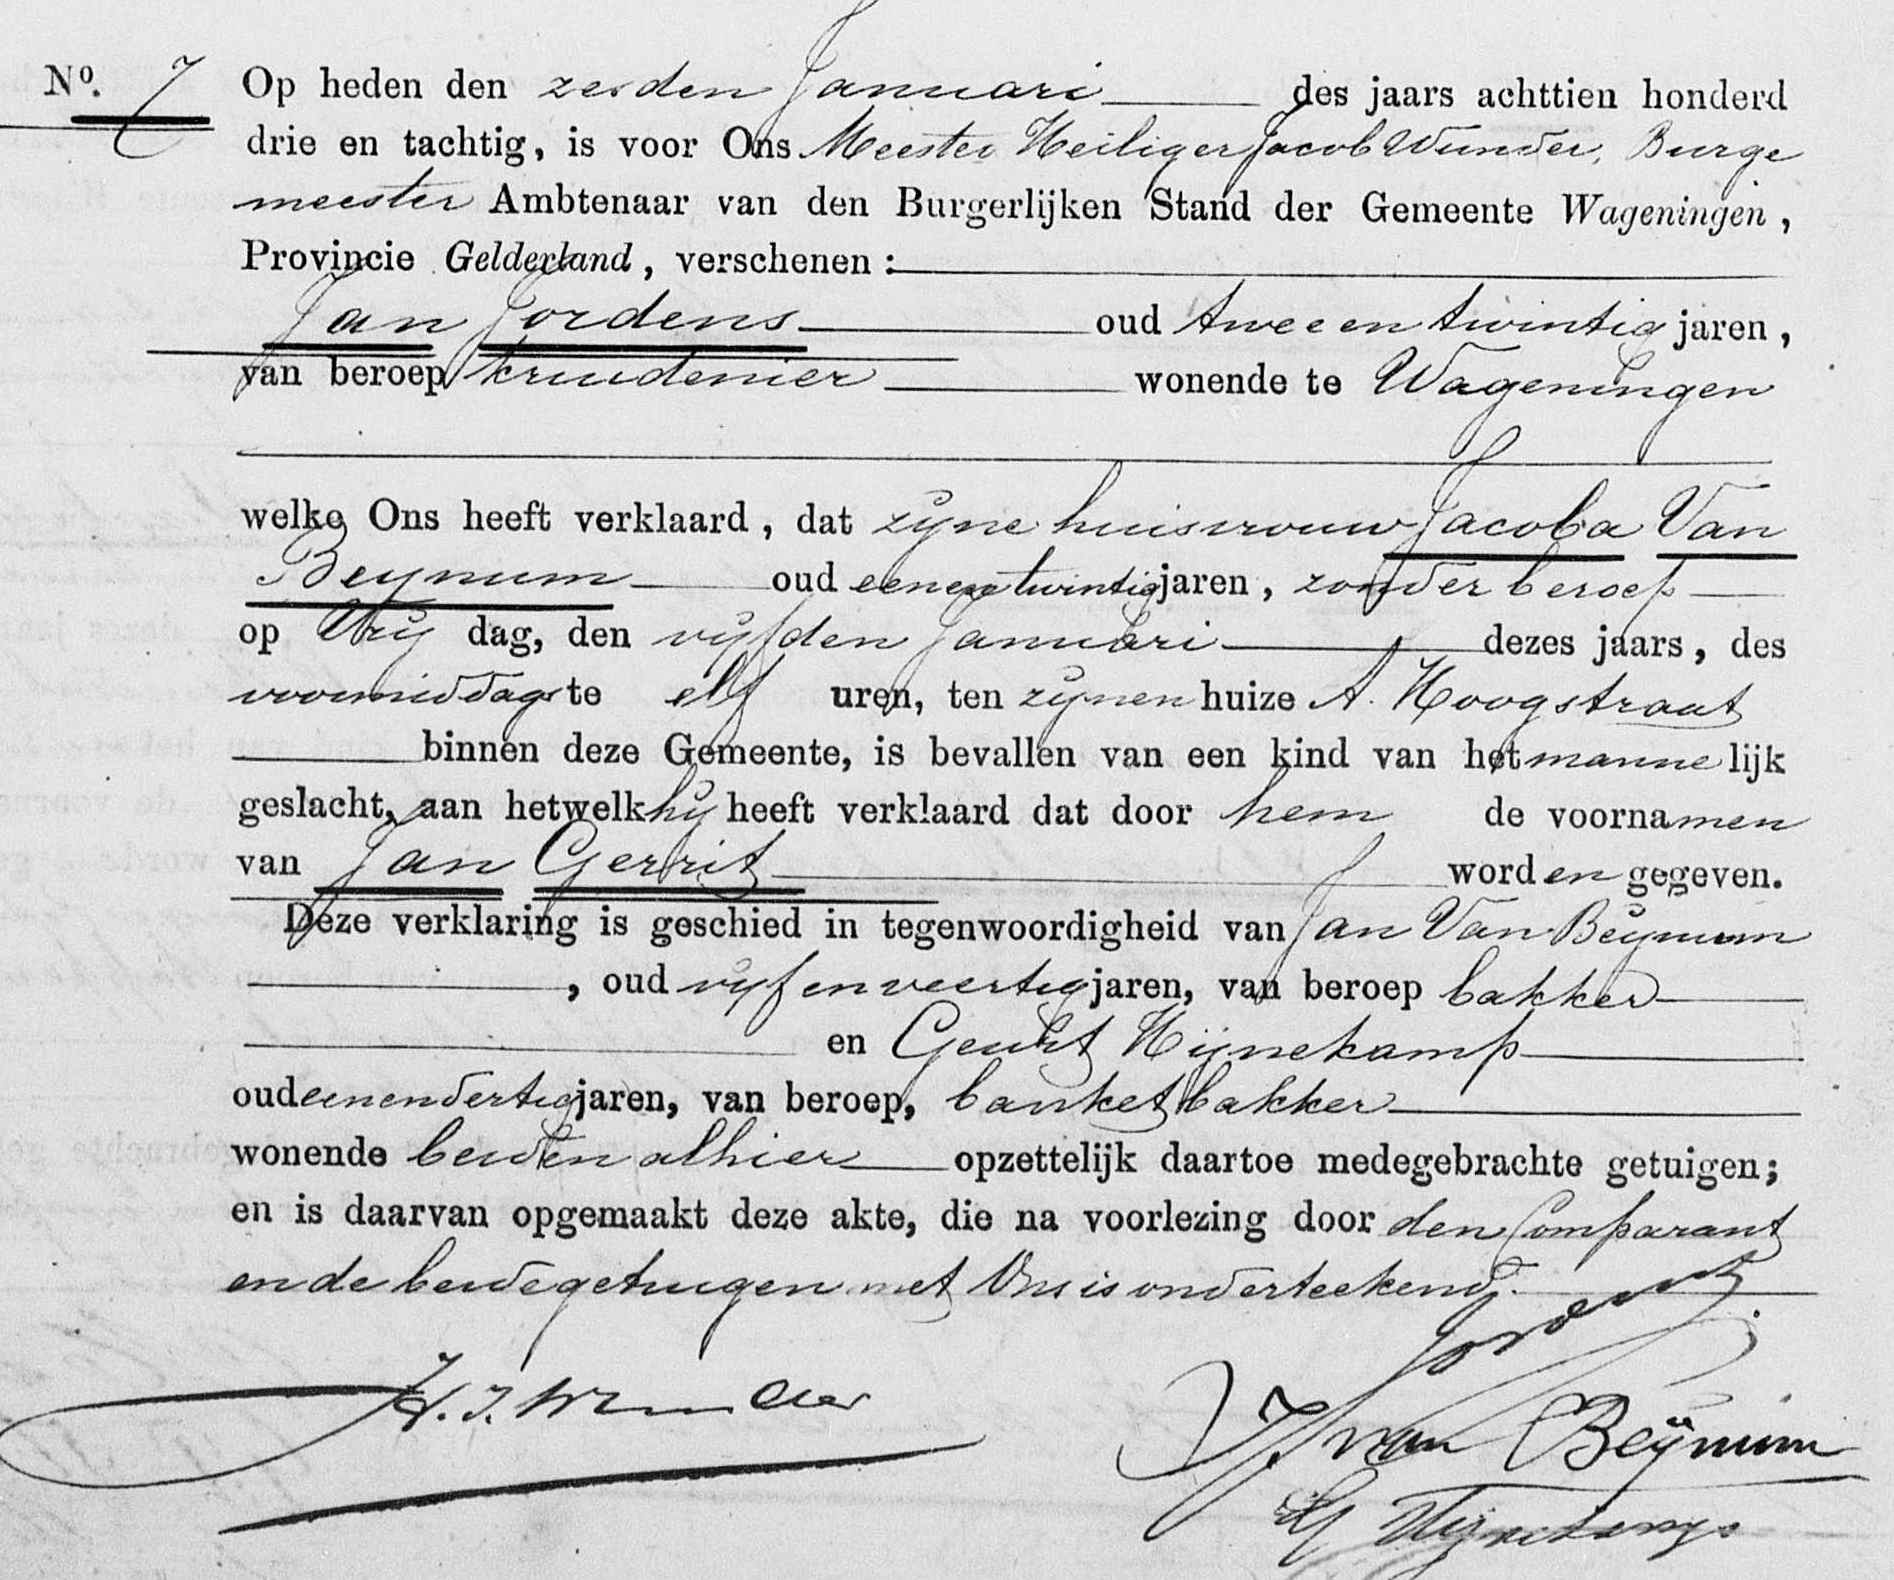 No. 7 Op heden den zesden Januari des jaars achttien honderd
drie en tachtig, is voor Ons Meester Heiliger Jacob Wunder, Burge
meester Ambtenaar van den Burgerlijken Stand der Gemeente Wageningen,
Provincie Gelderland, verschenen:
Jan Jordens oud twee en twintig jaren,
van beroep kruidenier wonende te Wageningen
welke Ons heeft verklaard, dat zijne huisvrouw Jacoba Van
Beynum oud eenentwintig jaren, zonder beroep
op Vrij dag, den vijfden Januari dezes jaars, des
voormiddags te elf uren, ten zijnen huize A. Hoogstraat
binnen deze Gemeente, is bevallen van een kind van het manne lijk
geslacht, aan hetwelk hij heeft verklaard dat door hem de voornamen
van Jan Gerrit worden gegeven.
Deze verklaring is geschied in tegenwoordigheid van Jan Van Beijnum
, oud vijfenveertig jaren, van beroep bakker
en Geurt Hijnekamp
oud eenendertig jaren, van beroep, banketbakker
wonende beiden alhier opzettelijk daartoe medegebrachte getuigen;
en is daarvan opgemaakt deze akte, die na voorlezing door den Comparant
en de beide getuigen met Ons is onderteekend.
Jordens
H. J. Wunder
J. van Beijnum
G Hijnekamp